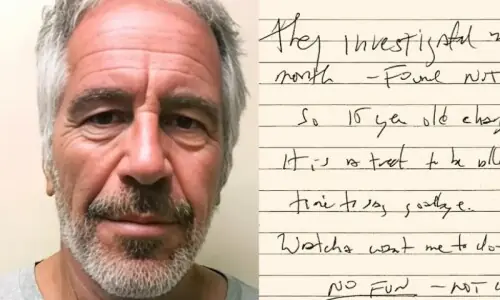 they investigated
month - Found NOT
So 15 year old
It is a treat to be
time to say goodbye.
Watcha want me to do -
NO FUN - NOT